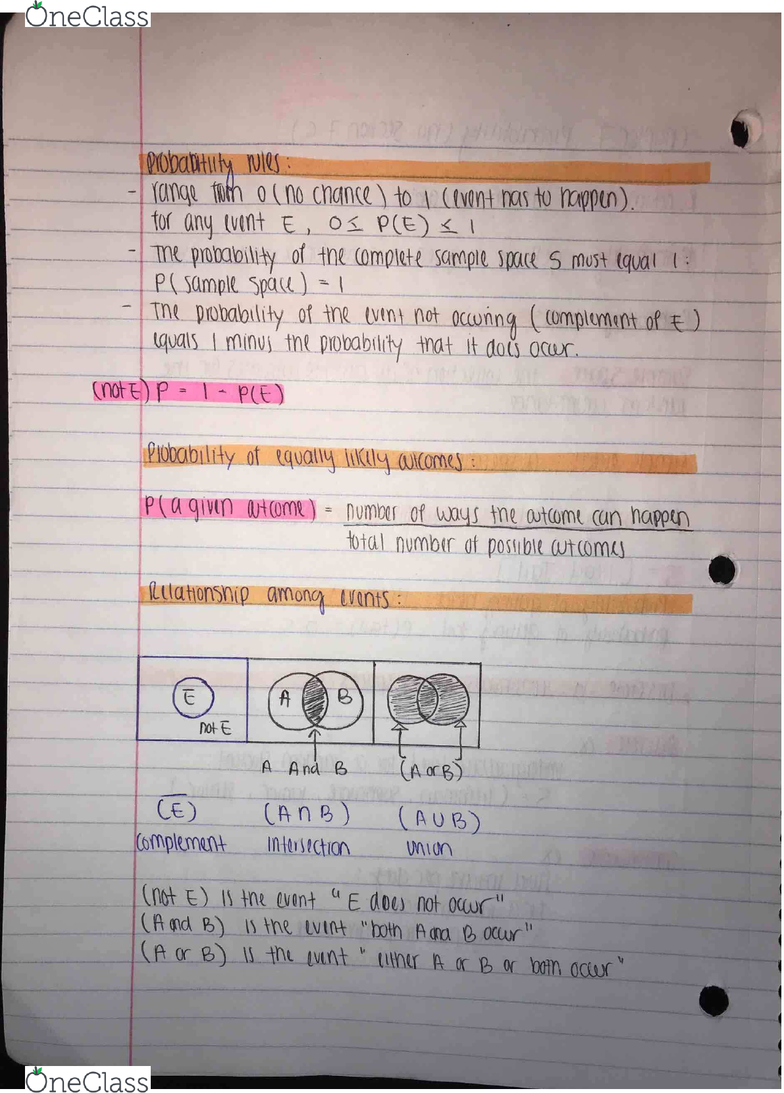 OneClass
Probability rules:
- range from 0 (no chance) to 1 (event has to happen).
for any event E, 0 ≤ P(E) ≤ 1
- The probability of the complete sample space S must equal 1:
P(sample space) = 1
- The probability of the event not occuring (complement of E)
equals 1 minus the probability that it does occur.
(not E) P = 1 - P(E)
Probability of equally likely outcomes:
P(a given outcome) = number of ways the outcome can happen
total number of possible outcomes
Relationship among events:
E A B
not E
A And B (A or B)
(E̅) (A ∩ B) (A ∪ B)
complement intersection union
(not E) is the event "E does not occur"
(A and B) is the event "both A and B occur"
(A or B) is the event "either A or B or both occur"
OneClass